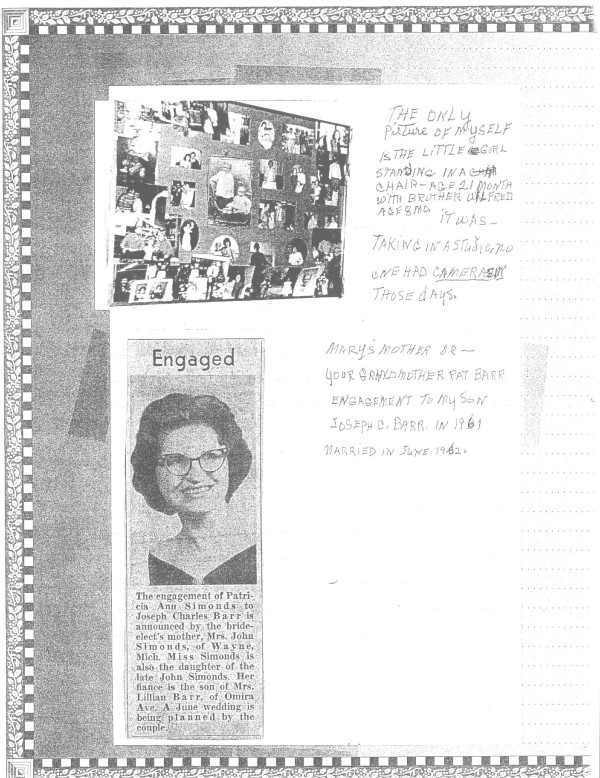 THE ONLY
Picture OF MYSELF
IS THE LITTLE GIRL
STANDING IN A
CHAIR - AGE 21 MONTH
WITH BROTHER WILFRED
AGE 8 MO
IT WAS -
TAKING IN A STUDIO, NO
ONE HAD CAMERAS IN
THOSE dAYS.
MARY'S MOTHER OR -
YOUR GRANDMOTHER PAT BARR
ENGAGEMENT TO MY SON
JOSEPH C. BARR. IN 1961
MARRIED IN JUNE 1962.
Engaged
The engagement of Patri-
cia Ann Simonds to
Joseph Charles Barr is
announced by the bride-
elect's mother, Mrs. John
Simonds, of Wayne,
Mich. Miss Simonds is
also the daughter of the
late John Simonds. Her
fiance is the son of Mrs.
Lillian Barr, of Omira
Ave. A June wedding is
being planned by the
couple.